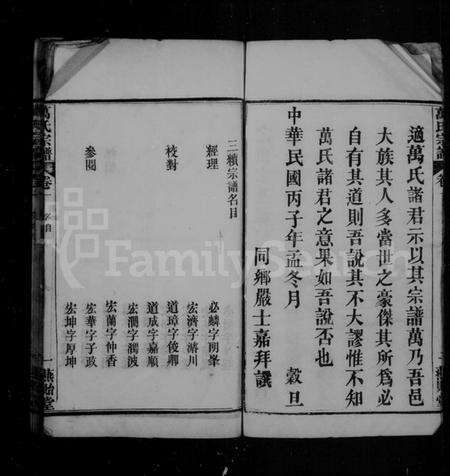 萬氏宗譜
適萬氏諸君示以其宗譜萬乃吾邑
大族其人多當世之豪傑其所為必
自有其道則吾說其不大謬惟不知
萬氏諸君之意果如吾說否也
中華民國丙子年孟冬月 穀旦
同鄉嚴士嘉拜譔
三續宗譜名目
經理
必麟字閉峯
宏濟字濬川
校對
道璋字俊卿
道成字嘉順
宏潤字潤波
參閱
宏蘭字仲香
宏華字子政
宏坤字厚坤
萬氏宗譜 卷一
一燕貽堂
FamilySearch